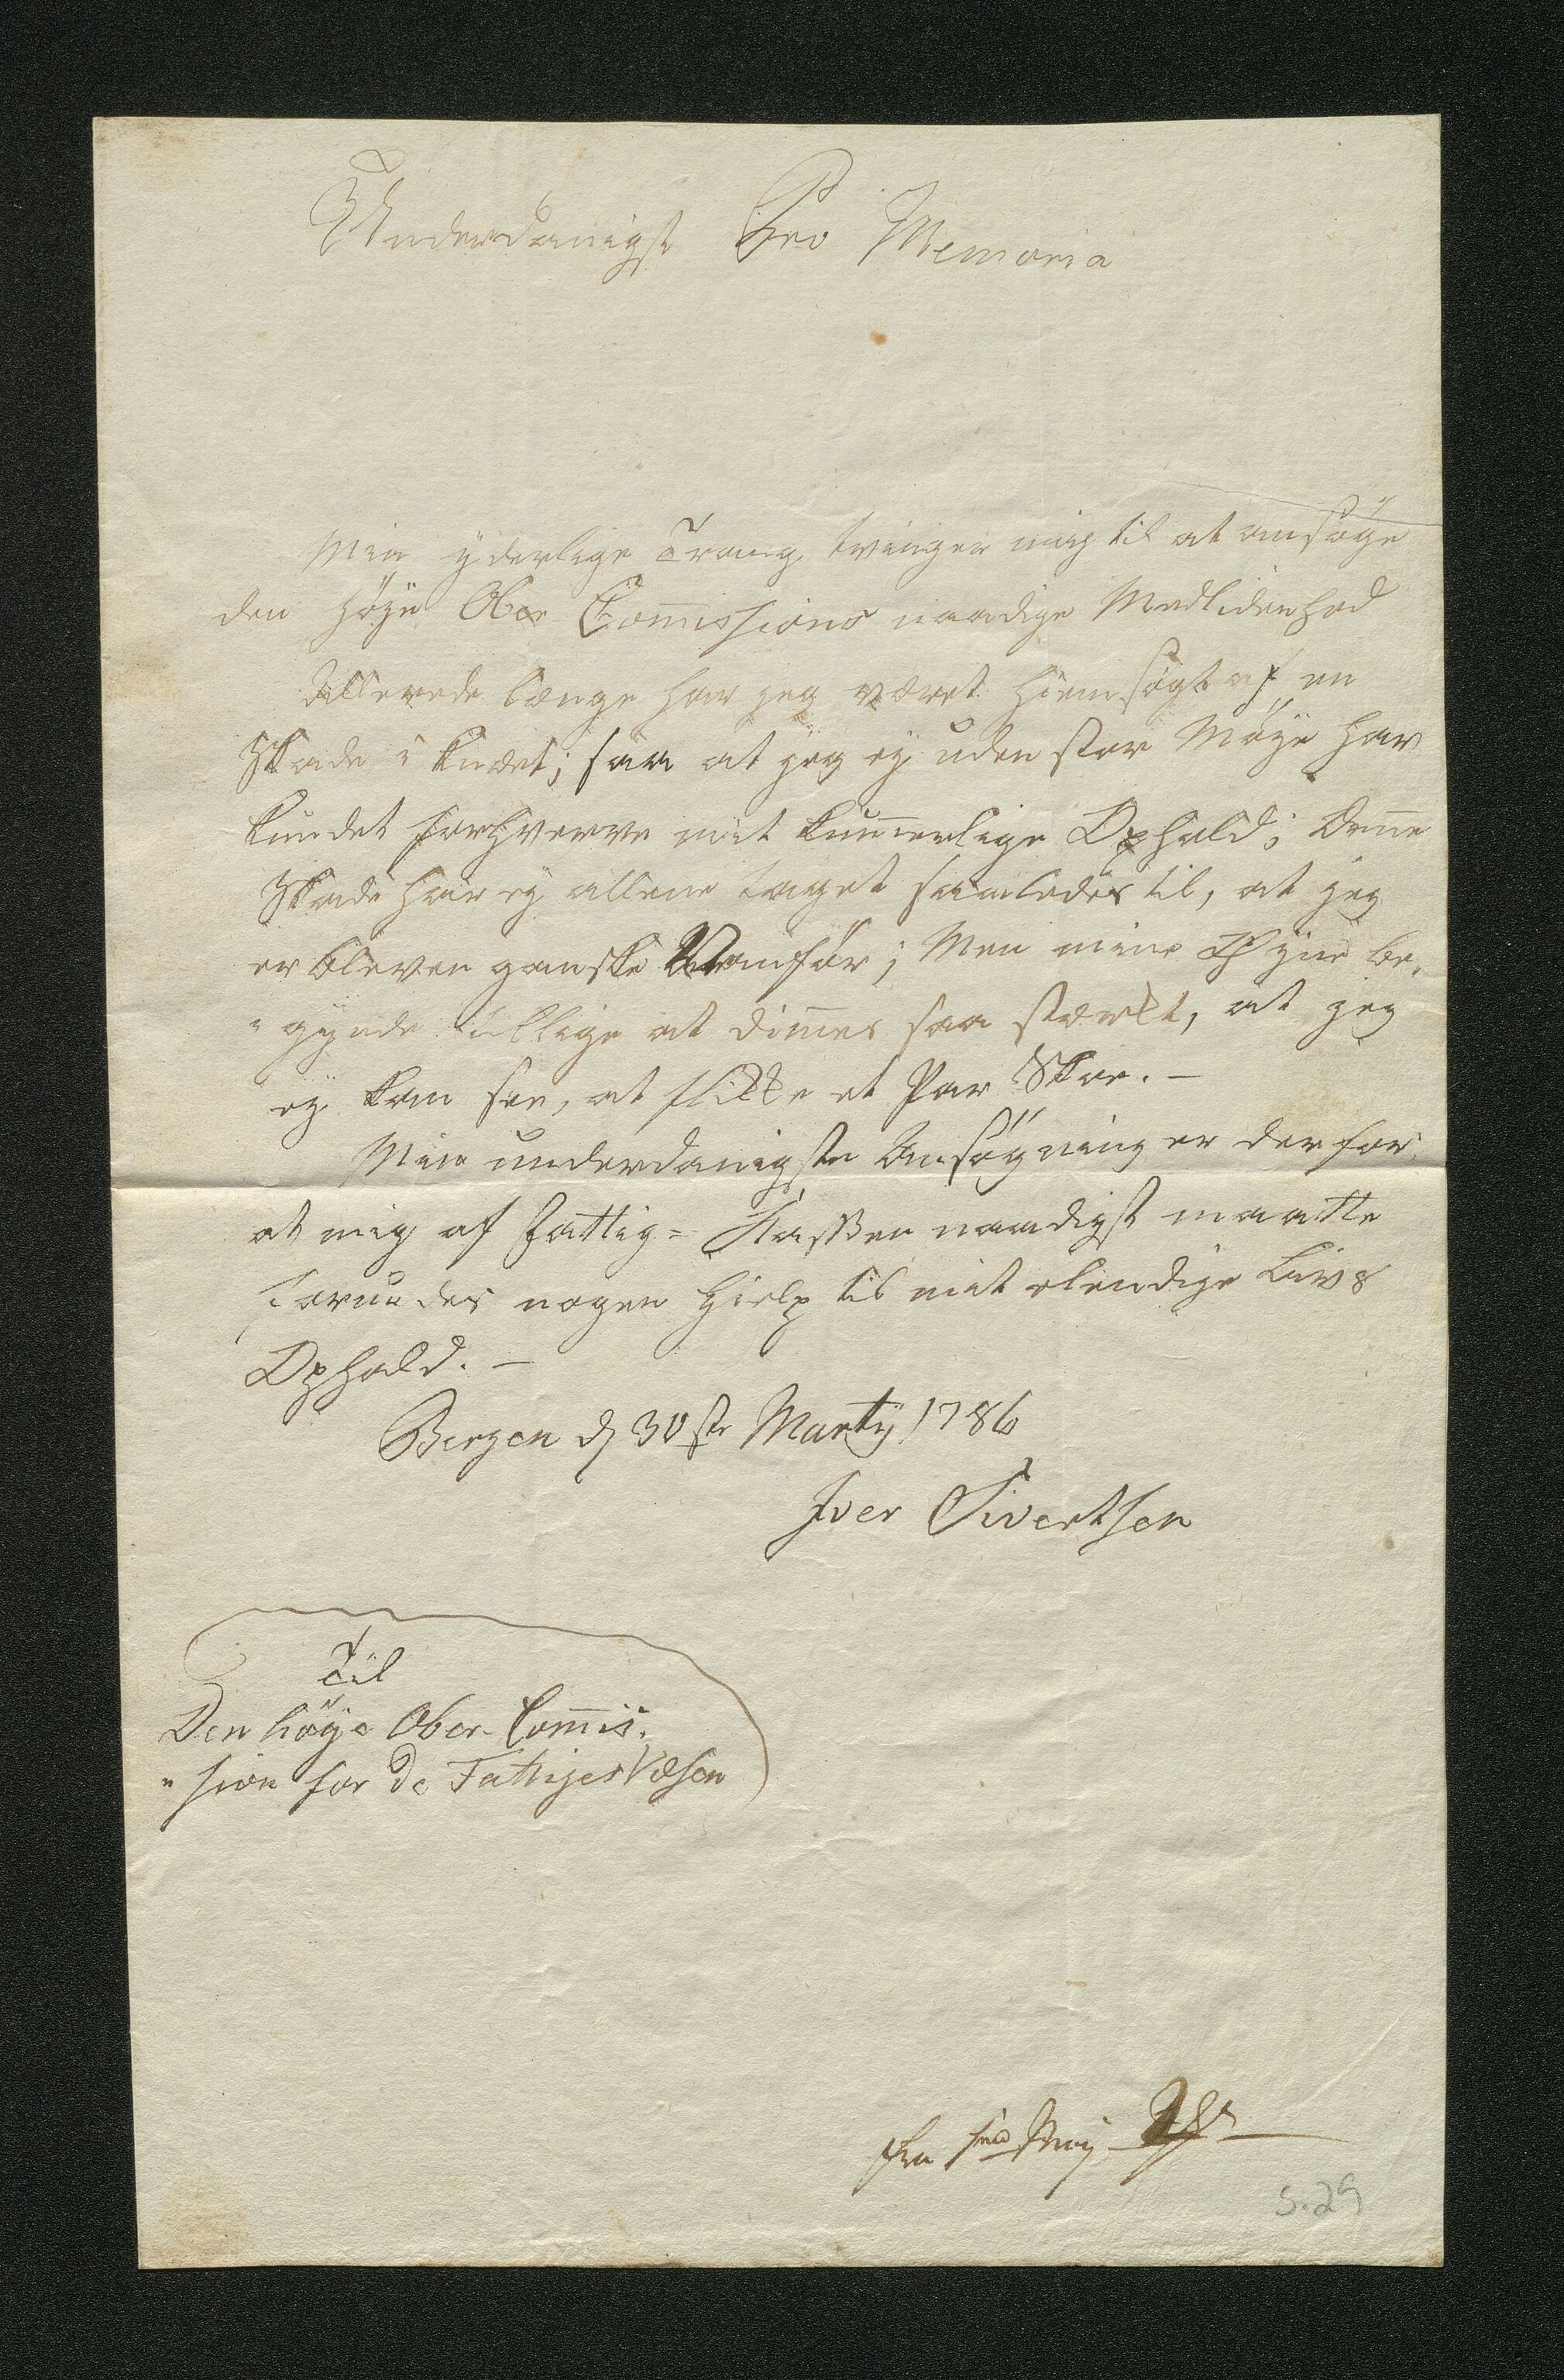 Underdanigst Pro Memoria
Min yderlige Trang tvinger mig til at ansöge
den höye Ober Com̄issions naadige Medlidenhed
Allerede længe har jeg været hiemsögt af en
Skade i Knæet; saa at jeg ey uden stor Möye har
kundet forhverve mit kum̄erlige Ophold; Den̄e
Skade har ey allene taget saaledes til, at jeg
er bleven ganske Vanför; Men mine Öyne be„
„gynde tillige at dim̄es saa stærkt, at jeg
ey kan see, at flikke et Par Skoe. –
Min underdanigste Ansögning er derfor
at mig af Fattig-Kassen naadigst maatte
forundes nogen Hielp til mit elendige Livs
Ophold. –
Bergen d 30ste Martij 1786
Iver Sivertsen
Til
Den höye Ober-Com̄is„
„sion for de Fattiges Væsen
fra Maj
S. 29